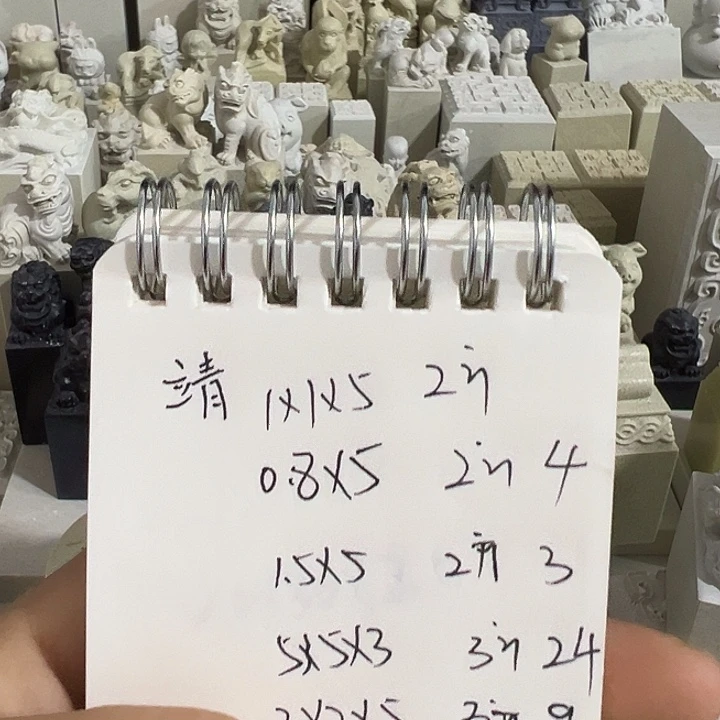 靖 1X1X5 2方
0.8X5 2方 4
1.5X5 2方 3
5X5X3 3方 24
2X2X5